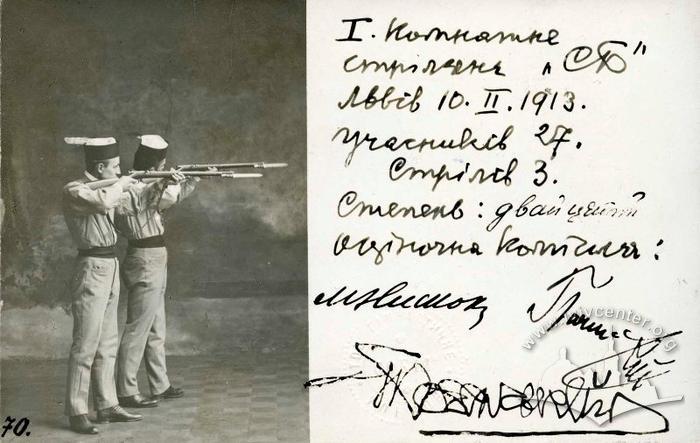 I. Комнатне
стрілянє „СБ"
Львів 10.II.1913.
учасників 27.
Стрілів 3.
Степень: двайцятий
Оціночна Комісия:
www.lvivcenter.org
70.